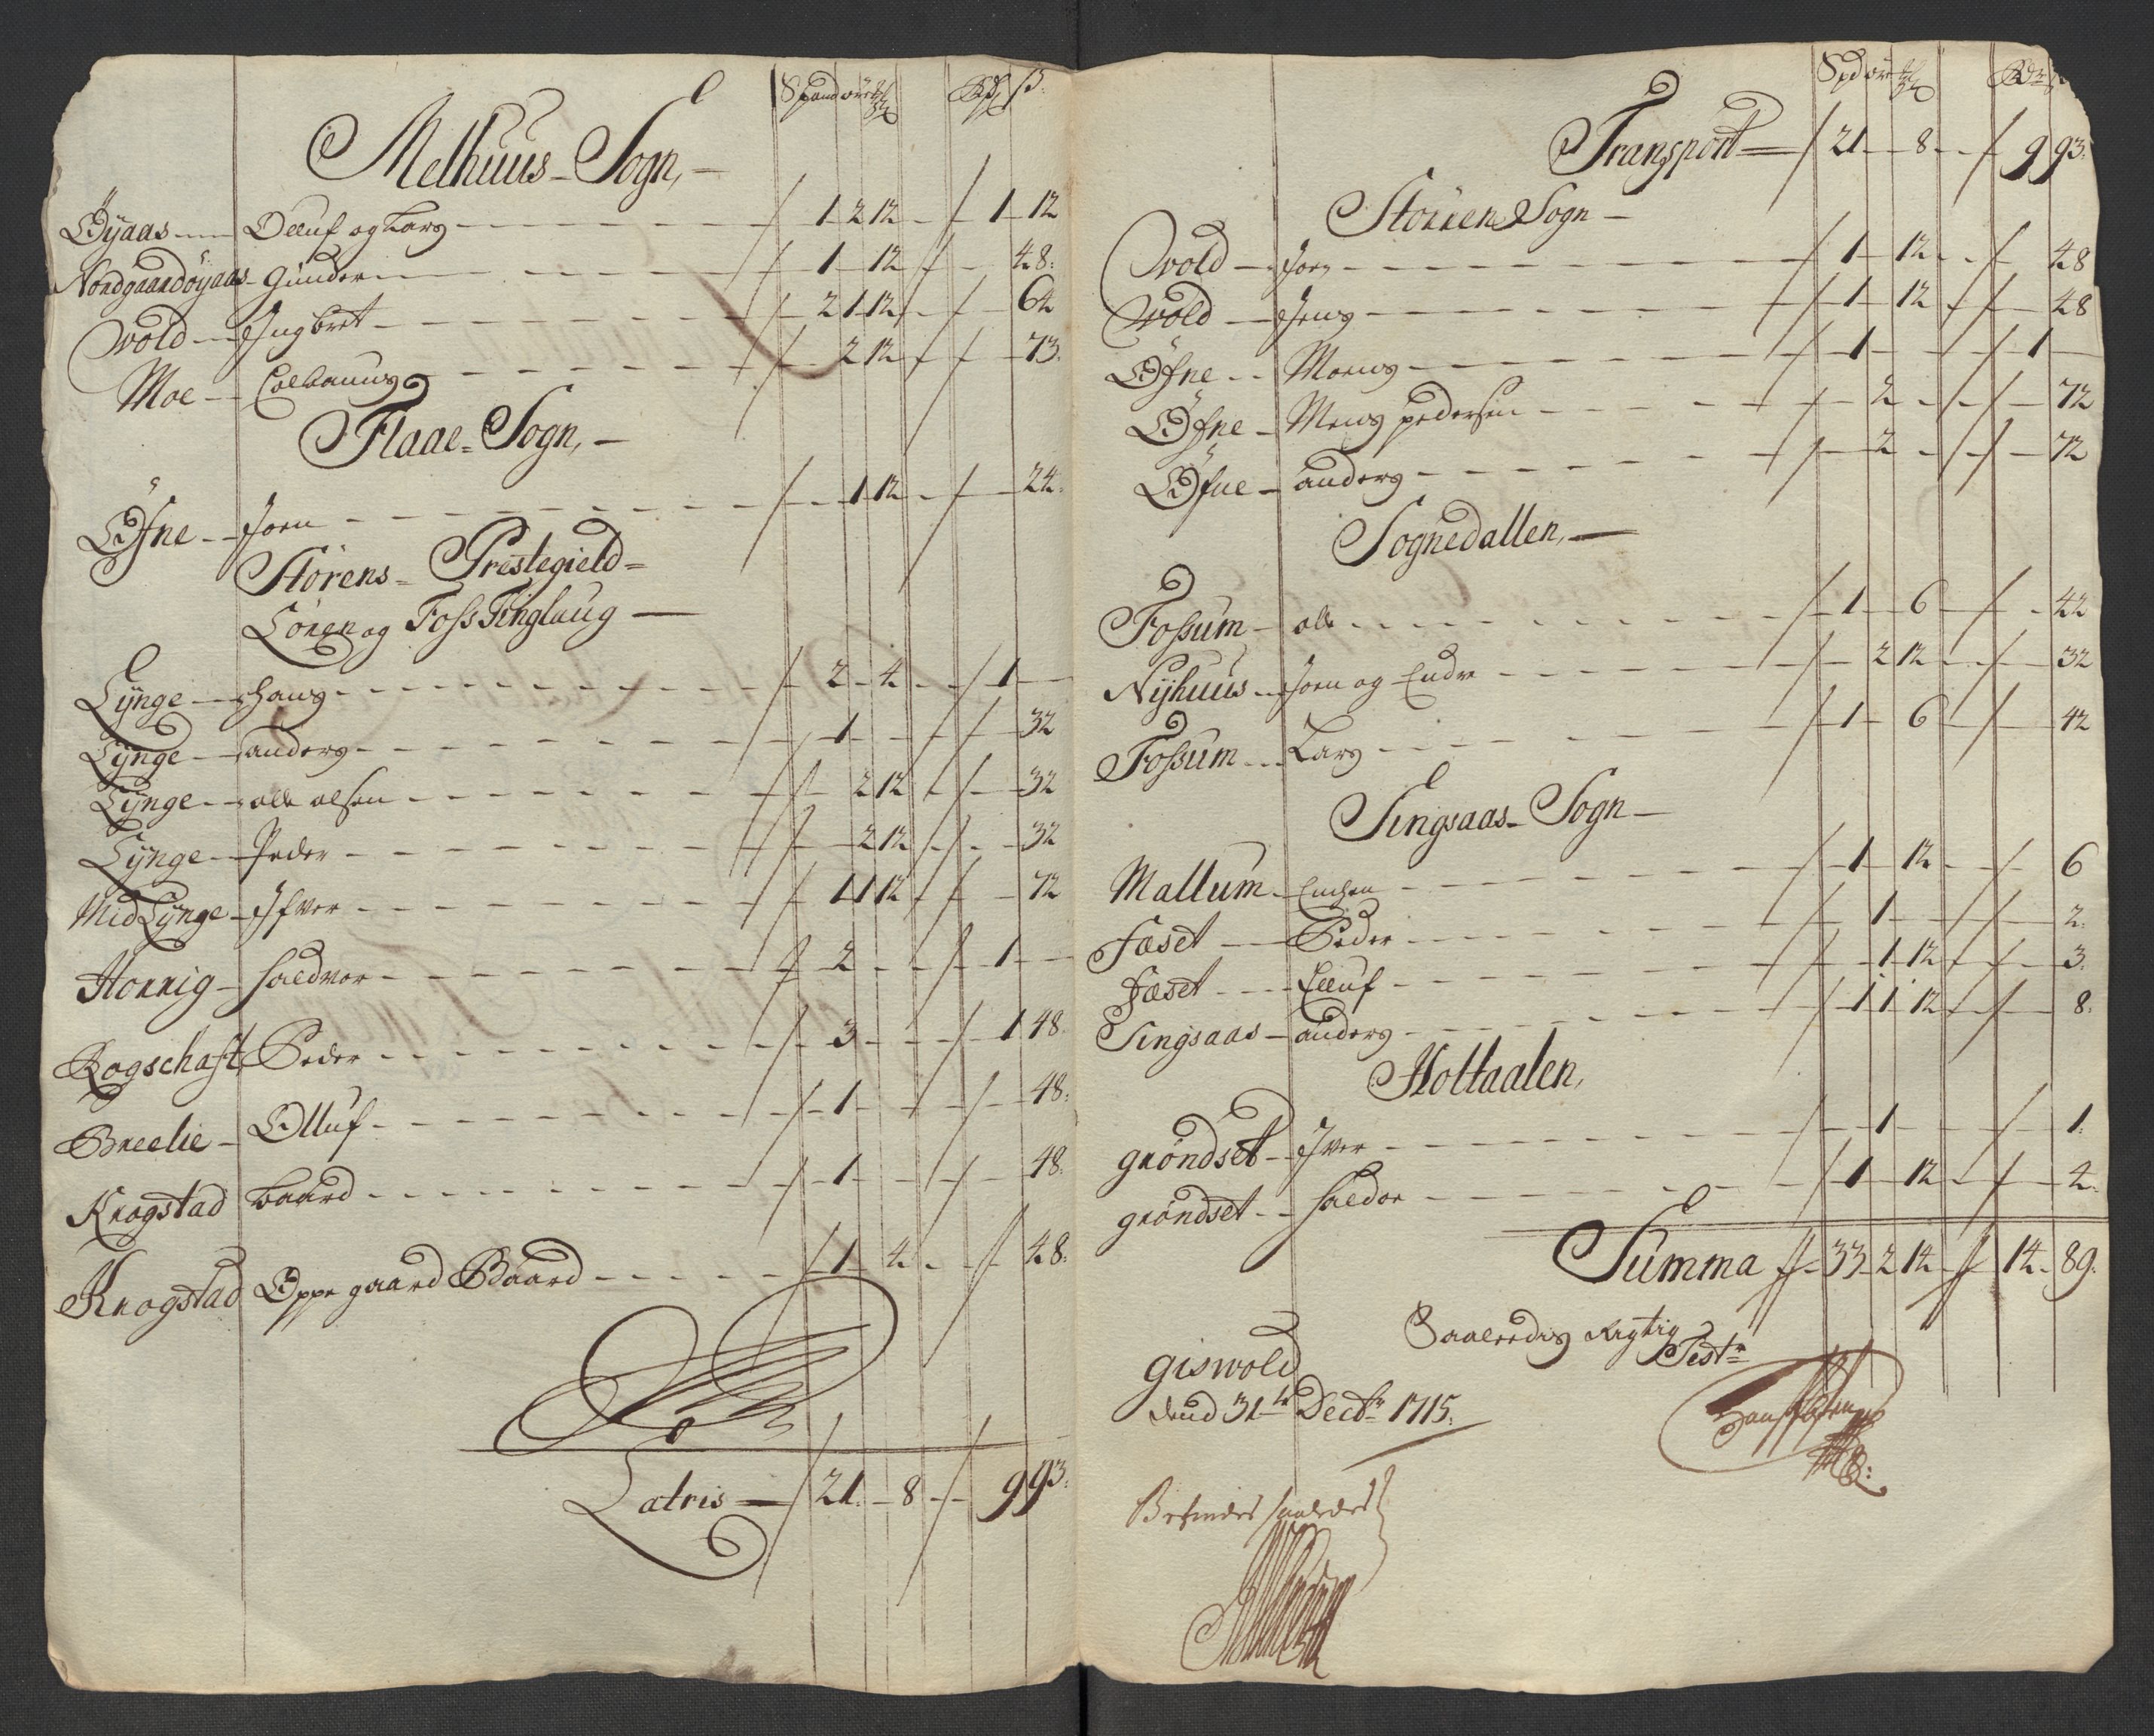 Spand øre ## Rdr ß:
Melhuus Sogn,
Øyaas Oluf og Lars 1 2 12 1 12
Nordgaardøyaas Gunder 1 12 48:
Wold Ingbret 2 1 12 64
Moe 2 12 73:
Flaae Sogn,
Øfne Joen 1 12 24:
Störens Prestegield
Sören og Foss Tinglaug
Lÿnge Hans 2 4 1
Lÿnge anders 1 32
Lÿnge olle olsen 2 12 32
Lÿnge Peder 2 12 32
Mid Lÿnge Ifver 1 1 12 72
Horrig Haldvor 2 1
Rogschaft Peder 3 1 48
Breelie Olluf 1 48:
Krogstad Baard 1 48:
Krogstad Oppegaard Baard 1 4 48:
Latris 21 8 9 93:
Spd øre Rdr
Transport 21 8 9 93:
Stören Sogn
Wold Joen 1 12 48
Wold Jens 1 12 48
Øfne Moens 1 1
Øfne Mons pedersen 2 72
Øfne anders 2 72
Sognedallen,
Fossum olle 1 6 42
Nÿhuus Joen og Endre 2 12 32
Fossum Lars 1 6 42
Singsaas Sogn
Mallum 1 12 6
Fæset Peder 1 2:
Fæset Elluf 1 12 3:
Singsaas anders 1 1 12 8:
Holtaalen,
grøndset Iver 1 1:
grøndset Haldor 1 12 4:
Summa 33 2 14 14 89:
Saaleedis Rigtig
Test
giswold
dend 31te Decbr 1715:
Befindes saaledes